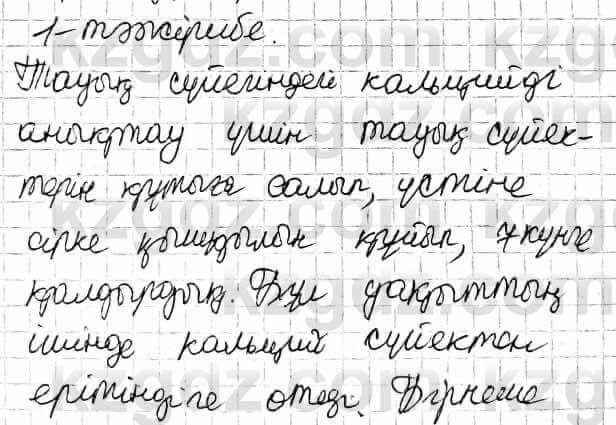 1-тәжірибе.
Тауық сүйегіндегі кальцийді
анықтау үшін тауық сүйек-
терін құтыға салып, үстіне
сірке қышқылын құйып, 7 күнге
қалдырдық. Бұл уақыттың
ішінде кальций сүйектен
ерітіндіге өтеді. Бірнеше